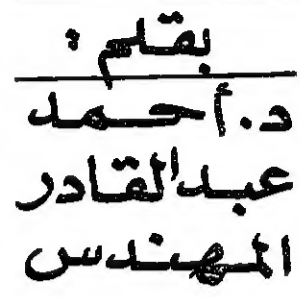 بقلم :
د. أحمد
عبدالقادر
المهندس